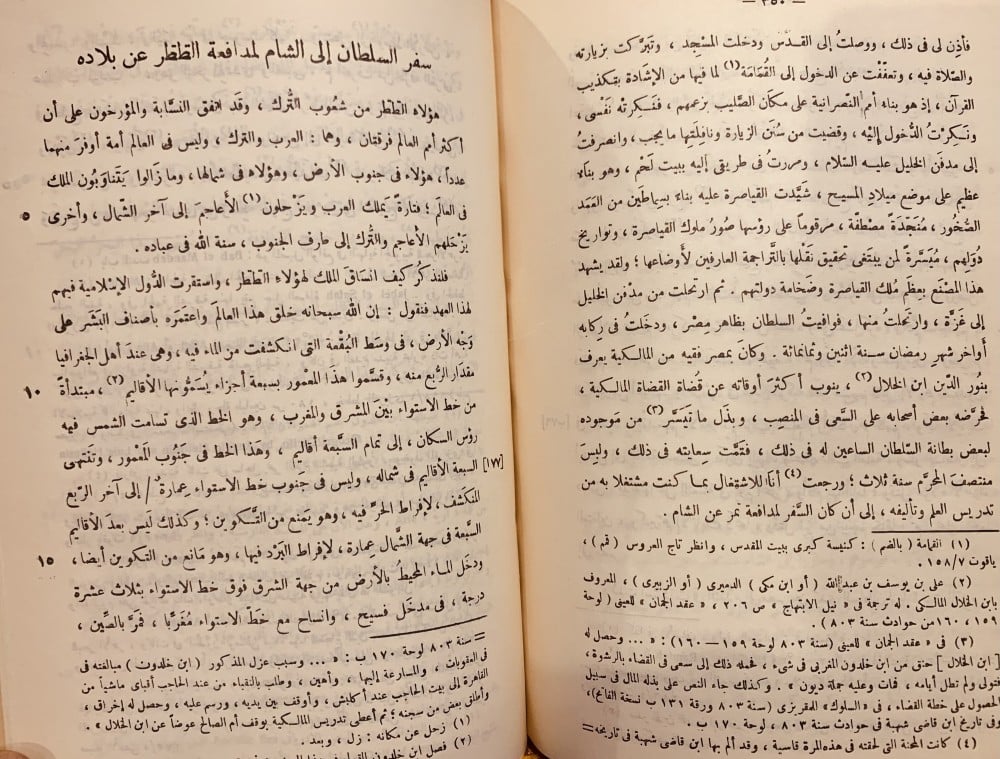 — ٣٥٠ —
فأذِن لى فى ذلك ، ووصلتُ إلى القدْس ودخلت المسْجد ، وتبَرَّكت بزيارته
والصّلاة فيه ، وتعفّفْت عن الدخول إلى القُمَامَة (١) لما فيها من الإشادة بتكذيب
القرآن ، إذ هو بناء أمم النّصرانية على مكان الصَّليب بزعمهم ، فنَكِرتْه نَفْسى ،
ونَكِرْتُ الدُّخول إليْه ، وقضيت من سُنَن الزيارة ونافِلَتِها ما يجب ، وانصرفتُ
إلى مدفن الخليل عليه السّلام ، ومررتُ فى طريقى إليه ببيت لَحْم ، وهو بناء
عظيم على موضع ميلاد المسيح ، شَيَّدت القياصرة عليه بناءً بسِماطين من العَمَد
الصُّخُور ، مُنَجَّدَةً مصْطفّة ، مرقوماً على رؤسها صُورُ ملوك القياصرة ، وتواريخ
دُوَلِهم ، مُيَسَّرةً لمن يبتغى تحقيق نَقْلها بالتَّراجمة العارفين لأوضاعها ؛ ولقد يشهد
هذا المصْنَع بعِظَم مُلك القياصرة وضَخامة دولتهم . ثم ارتحلت من مدْفن الخليل
إلى غَزَّة ، وارتحلتُ منها ، فوافيتُ السلطان بظاهر مِصْر ، ودخلتُ فى ركابه
أواخر شهرِ رمضان سنة اثنين وثمانمائة . وكانَ بمصر فقيه من المالكية يعرف
بنُور الدّين ابن الخلال (٢) ، ينوب أكثرَ أوقاته عن قُضاة القضاة المالكية ،
فحرَّضه بعض أصحابه على السَّعى فى المنصِب ، وبذْل ما تيَسَّرَ (٣) من مَوجوده
لبعض بطانة السّلطان الساعين له فى ذلك ، فتَمَّت سِعايته فى ذلك ، ولبِسَ
منتصفَ المحرَّم سنة ثلاث ؛ ورجعت (٤) أنا للاشتِغال بما كنت مشتغلا به من
تدريس العلم وتأليفه ، إلى أن كان السَّفر لمدافعة تمر عن الشام .
(١) القمامة ( بالضم ) : كنيسة كبرى ببيت المقدس ، وانظر تاج العروس ( قم ) ،
ياقوت ١٥٨/٧ .
(٢) على بن يوسف بن عبد الله ( أو ابن مكى ) الدميرى ( أو الزبيرى ) ، المعروف
بابن الخلال المالكى . له ترجمة فى « نيل الابتهاج » ص ٢٠٦ ، « عقد الجمان » للعينى ( لوحة
١٥٩ ، ١٦٠ من حوادث سنة ٨٠٣ ) .
(٣) فى « عقد الجمان » للعينى (سنة ٨٠٣ لوحة ١٥٩ — ١٦٠) : « ... وحصل له
[ ابن الخلال ] حنق من ابن خلدون المغربى فى شىء ، فحمله ذلك إلى سعى فى القضاء بالرشوة ،
فتولى ولم تطل أيامه ، فمات وعليه جملة ديون » . وكذلك جاء النص على بذله المال فى سبيل
الحصول على خطة القضاء ، فى « السلوك » للمقريزى ( سنة ٨٠٣ ورقة ١٣١ ب نسخة الفاتح) ،
وفى تاريخ ابن قاضى شهبة فى حوادث سنة ٨٠٣ ، لوحة ١٧٠ ب .
(٤) كانت المحنة التى لحقته فى هذه المرة قاسية ، وقد ألم بها ابن قاضى شهبة فى تاريخه =
سفر السلطان إلى الشام لمدافعة الططر عن بلاده
هؤلاء الططر من شعُوب التُّرك ، وقَد اتفق النَّسابة والمؤرخون على أن
أكثر أمم العالم فرقتان ، وهما : العرب والترك ، وليس فى العالم أمة أوفرَ منهما
عدداً ، هؤلاء فى جنوب الأرض ، وهؤلاء فى شمالها ، وما زالوا يَتَناوَبُون الملك
فى العالَم ؛ فتارةً يَملك العرب ويَزْحلون (١) الأعاجم إلى آخر الشّمال ، وأخرى
٥
يَزْحَلهم الأعاجم والتُّرك إلى طرف الجنوب ، سنة الله فى عباده .
فلنذكُر كيف انسَاقَ الملك لهؤلاء الططر ، واستقرت الدُّول الإسْلامية فيهم
لهذا العهد فنقول : إن الله سبحانه خلق هذا العالَم واعتمَره بأصناف البَشَر على
وَجْه الأرض ، فى وسَط البُقْعة التى انكشفت من الماء فيه ، وهى عندَ أهل الجغرافيا
مقدَار الرُّبع منه ، وقسَّموا هذَا المعْمور بسبعة أجزاء يُسَمُّونها الأقاليم (٢) ، مبتدأةً
١٠
من خط الاستواء بَيْنَ المشرق والمغرب ، وهو الخط الذى تسامت الشمس فيه
رؤس السكان ، إلى تمام السَّبعة أقاليم ، وهَذا الخط فى جَنُوب المَعْمور ، وتنتهى
السبعة الأقاليم فى شماله ، وليس فى جَنوب خط الاستواء عِمارة / إلى آخر الرّبع
[١٧٧]
المنكَشف ، لإفراط الحرّ فيه ، وهو يَمنع من التَّكوين ؛ وكذلك لَيس بعدَ الأقاليم
السَّبعة فى جهة الشَّمال عِمارة ، لإفراط البَرْد فيها ، وهو مَانع من التكوين أيضا ،
١٥
ودخَل المـاء المحيطُ بالأرض من جهة الشرق فوق خط الاستواء بثلاث عشرة
درجة ، فى مدخَل فسيح ، وانساح مع خطّ الاستواء مُغَرِّبًا ، فمَرَّ بالصِّين ،
= سنة ٨٠٣ لوحة ١٧٠ ب : « ... وسبب عزل المذكور ( ابن خلدون ) مبالغته فى
فى العقوبات ، والمسارعة إليها ، وأهين ، وطلب بالنقباء من عند الحاجب أقباى ماشياً من
القاهرة إلى بيت الحاجب عند أكلبش ، وأوقف بين يديه ، ورسم عليه ، وحصل له إخراق ،
وأطلق بعض من سجنه ؛ ثم أعطى تدريس المالكية بوقف أم الصالح عوضاً عن ابن الخلال » .
(١) زحل عن مكانه : زل ، وبعد .
(٢) فصل ابن خلدون